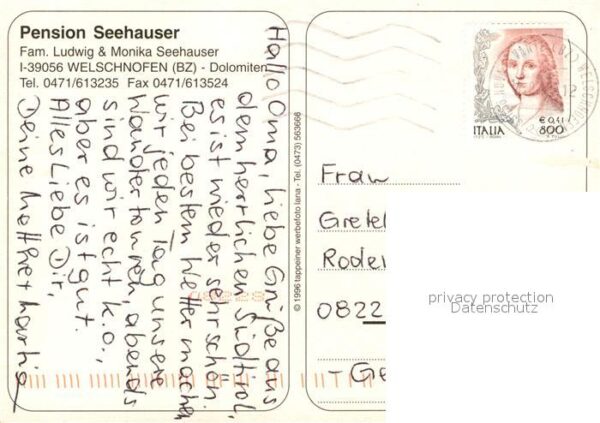 Pension Seehauser
Fam. Ludwig & Monika Seehauser
I-39056 WELSCHNOFEN (BZ) - Dolomiten
Tel. 0471/613235 Fax 0471/613524
Hallo Oma, liebe Grüße aus
dem herrlichen Südtirol,
es ist wieder sehr schön.
Bei bestem Wetter machen
wir jeden Tag unsere
Wandertouren, abends
sind wir echt k.o.,
aber es ist gut.
Alles Liebe Dir,
Deine
© 1996 tappeiner werbefoto lana - Tel. (0473) 563666
ITALIA
€ 0,41
800
12
Frau
Gretel
Roder
0822
- Ge
08228
privacy protection
Datenschutz